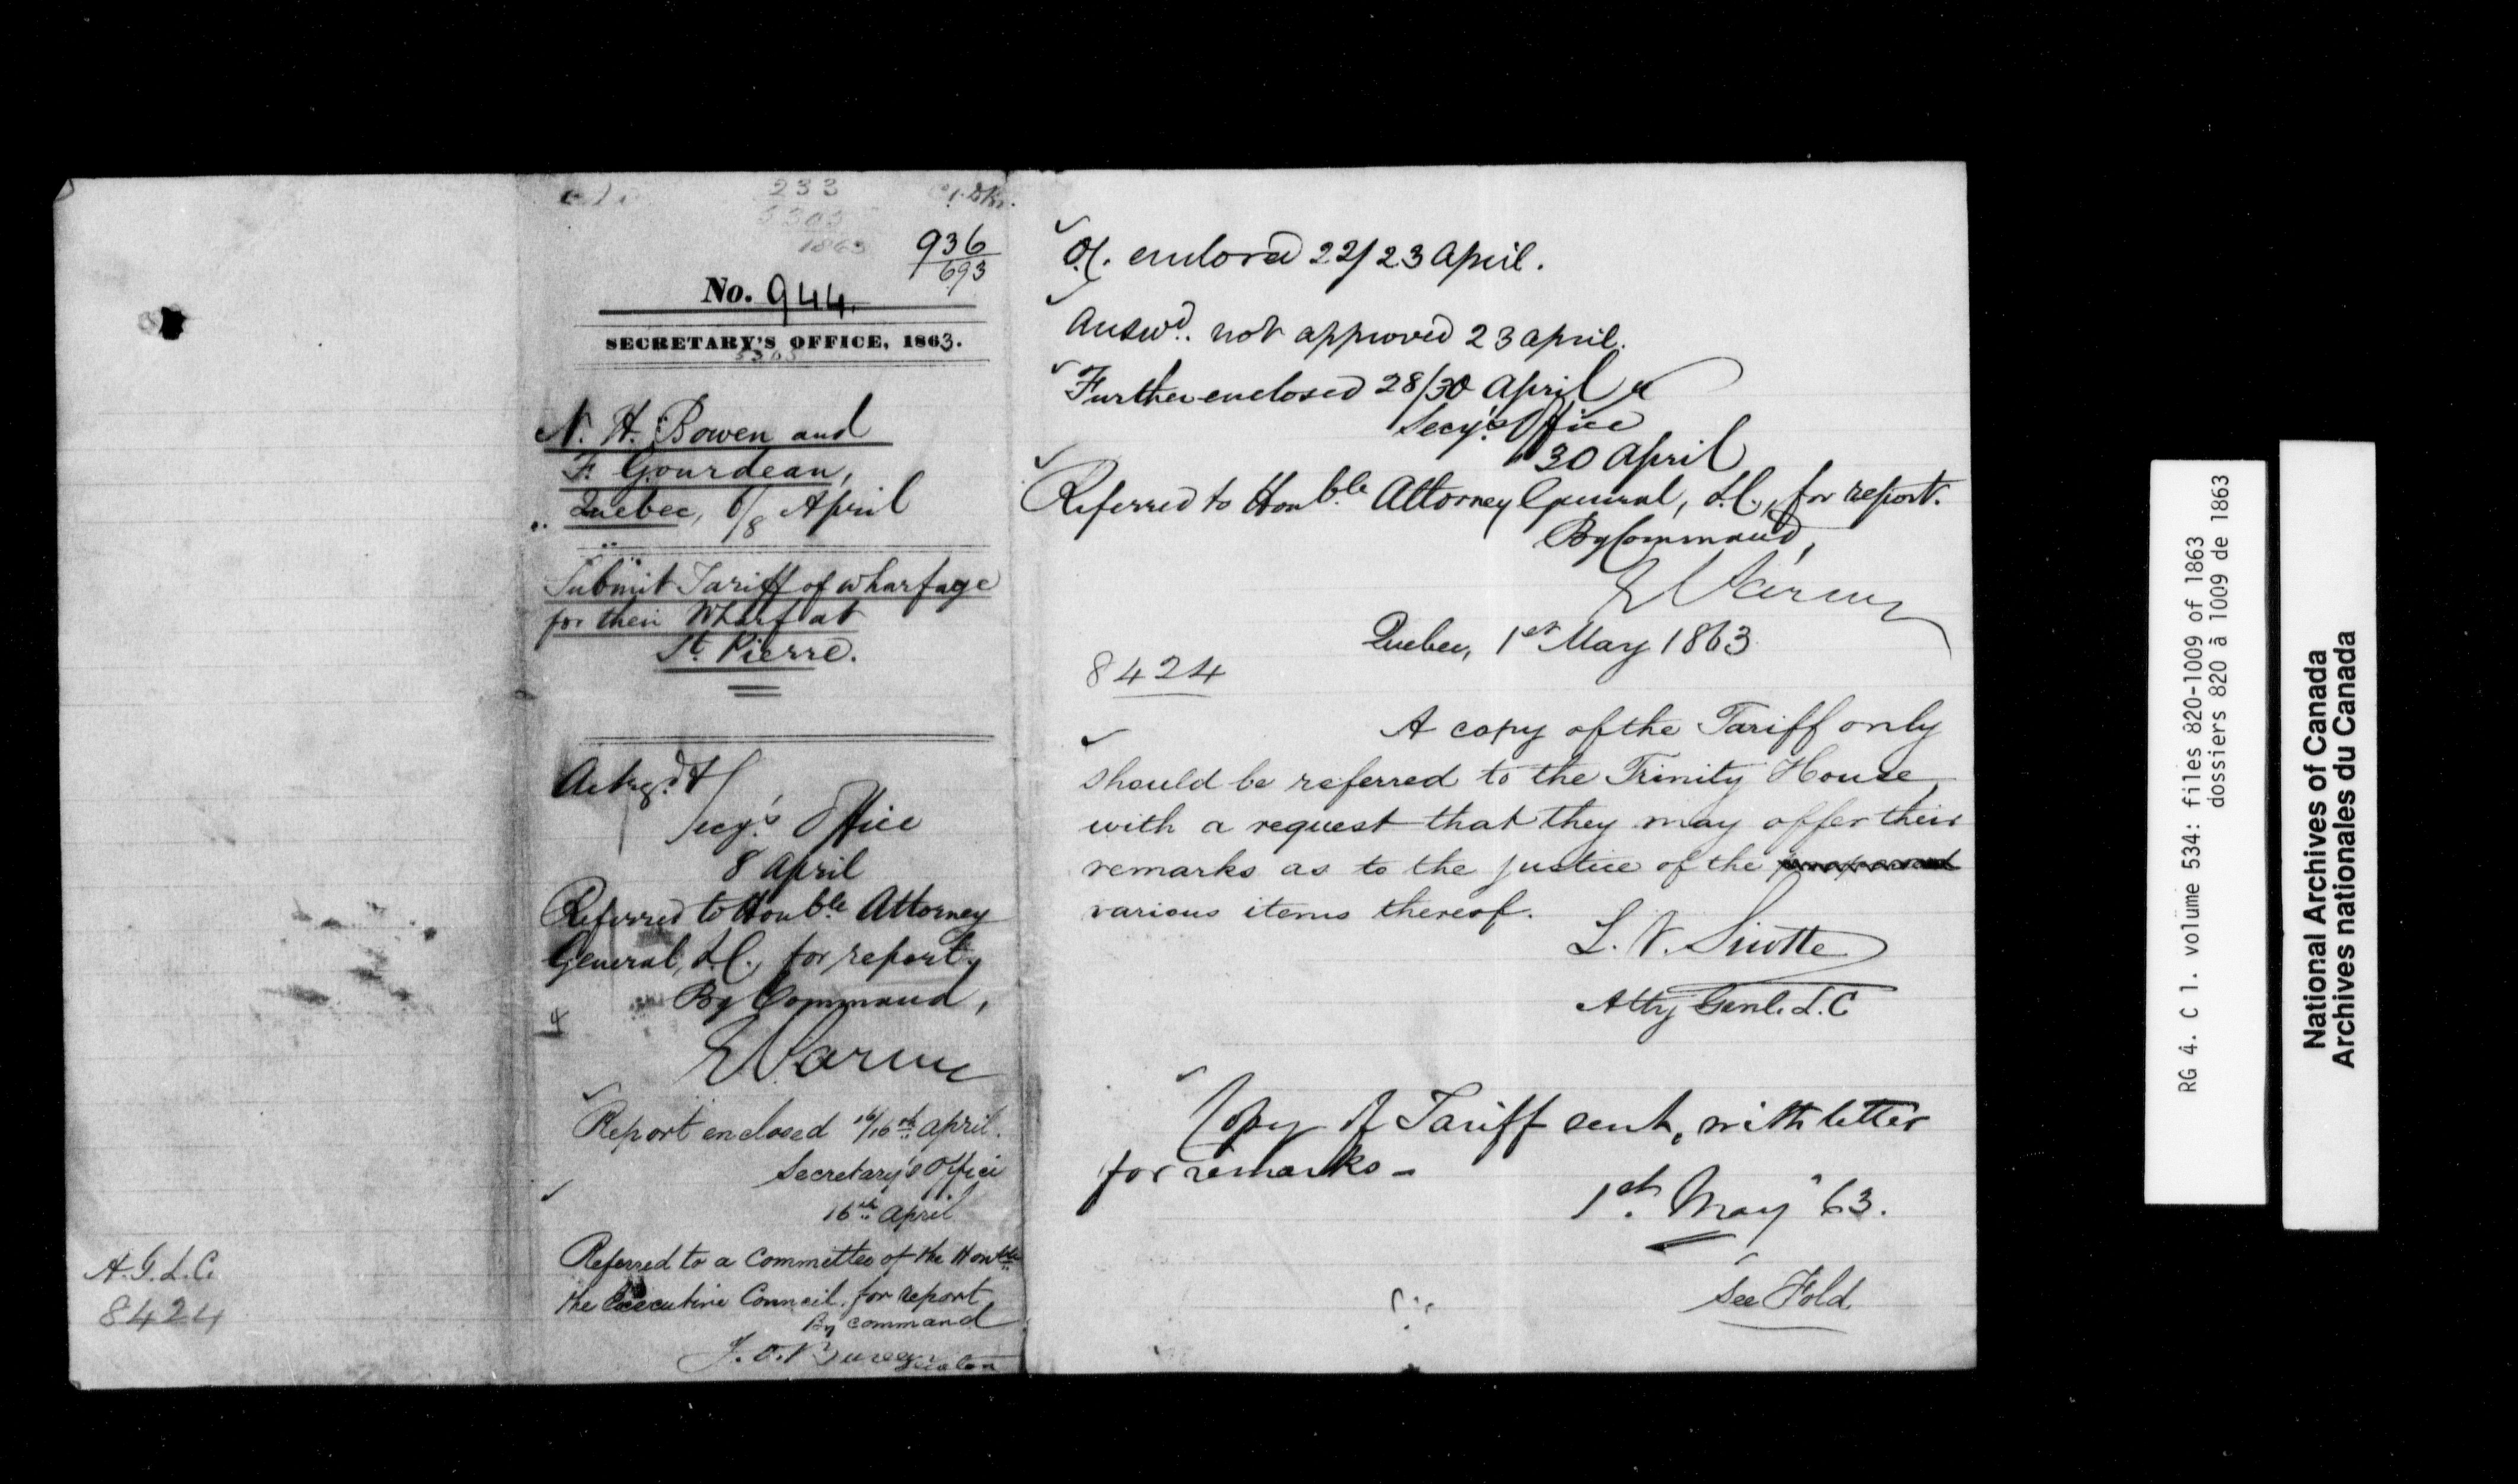 A.G.L.C.
8424
233
5303
1863
936
693
No. 944.
SECRETARY'S OFFICE, 1863.
N. H. Bowen and
F. Gourdeau,
Quebec, 6/8 April
Submit Tariff of wharfage
for their Wharf at
St. Pierre.
Ackgd. &
Secy's Office
8 April
Referred to Honble Attorney
General, L.C., for report.
By Command,
Report enclosed 16th April.
Secretary's Office
16th April
Referred to a Committee of the Honble
the Executive Council, for report
By command
O.C. enclosed 22/23 April.
Answd. not approved 23 April.
Further enclosed 28/30 April &
Secy's Office
30 April
Referred to Honble Attorney General, L.C., for report.
By Command,
Quebec, 1st May 1863
8424
A copy of the Tariff only
should be referred to the Trinity House
with a request that they may offer their
remarks as to the justice of the
various items thereof.
L. V. Sicotte
Atty Genl. L.C
Copy of Tariff sent, with letter
for remarks -
1st. May 63.
See Fold.
RG 4. C 1. volume 534: files 820-1009 of 1863
dossiers 820 à 1009 de 1863
National Archives of Canada
Archives nationales du Canada